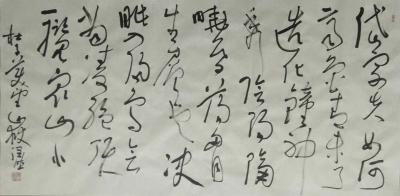 岱宗夫如何
齊魯青未了
造化鐘神
秀陰陽割
昏曉蕩胸
生層雲決
眥入歸鳥會
當凌絕頂
一覽眾山小
杜甫望岳